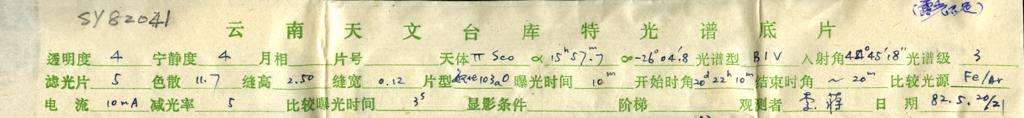 SY82041
云南天文台库特光谱底片
透明度 4 宁静度 4 月相 片号 天体 π Sco α 15ʰ57.ᵐ7 δ -26°04.'8 光谱型 B1V 入射角 45'18" 光谱级 3
滤光片 5 色散 11.7 缝高 2.50 缝宽 0.12 片型 103aO 曝光时间 10ᵐ 开始时角 20ᵈ22ʰ10ᵐ 结束时角 ~20ᵐ 比较光源 Fe/Ar
电流 10mA 减光率 5 比较曝光时间 3ˢ 显影条件 阶梯 观测者 李 蒋 日期 82.5.20/21